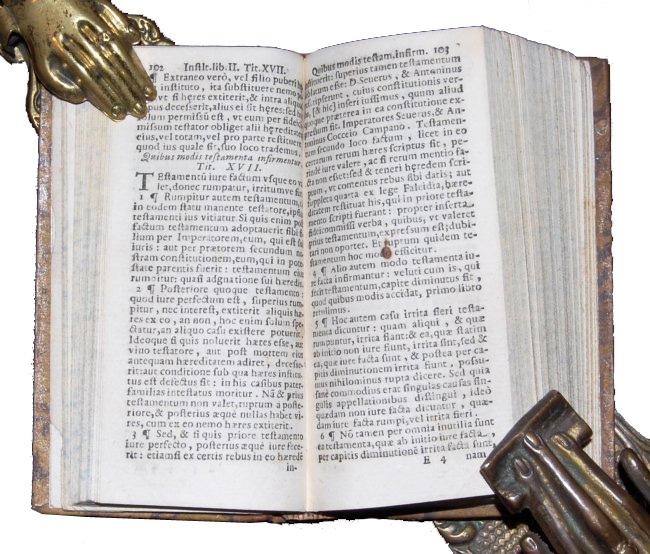 102 Instit. lib. II. Tit. XVII.
¶ Extraneo verò, vel filio puberi h
instituto, ita substituere nemo
vt si hęres extiterit, & intra aliqu
pus decesserit, alius ei sit hęres: sed
solum permissũ est, vt eum per fidei
missum testator obliget alii hęredit
eius, vel totam, vel pro parte restituere
quod ius quale sit, suo loco trademus.
Quibus modis testamenta infirmentur.
Tit. XVII.
TEstamentũ iure factum vsque eo v
let, donec rumpatur, irritumve fi
1 ¶ Rumpitur autem testamentum, c
in eodem statu manente testatore, ipsi
testamenti ius vitiatur. Si quis enim po
factum testamentum adoptauerit sibi fi
lium per Imperatorem, eum, qui est su
iuris: aut per prætorem secundum no
stram constitutionem, eum, qui in pote
state parentis fuerit: testamentum eius
rumpitur: quasi adgnatione sui hæredis.
2 ¶ Posteriore quoque testamento
quod iure perfectum est, superius rum
pitur, nec interest, extiterit aliquis hæ
res ex eo, an non, hoc enim solum spe
ctatur, an aliquo casu existere potuerit.
Ideoque si quis noluerit hæres esse, aut
viuo testatore, aut post mortem eius
antequam hæreditatem adiret, decesse
rit: aut conditione sub qua hæres institu
tus est defectus sit: in his casibus pater
familias intestatus moritur. Nã & prius
testamentum non valet, ruptum à poste
riore, & posterius æquè nullas habet vi
res, cum ex eo nemo hæres extiterit.
3 ¶ Sed, & si quis priore testamento
iure perfecto, posterius æquè iure fece
rit: etiamsi ex certis rebus in eo hæredē
in-
Quibus modis testam. infirm. 103
superius tamen testamentum
D. Seuerus, & Antoninus
cuius constitutionis ver
inseri iussimus, quum aliud
præterea in ea constitutione ex
est. Imperatores Seuerus, & An
Cocceio Campano. Testamen
secundo loco factum, licet in eo
rerum hæres scriptus sit, pe
iure valere, ac si rerum mentio fa
non esset: sed & teneri hęredem scri
vt contentus rebus sibi datis; aut
suppleta quarta ex lege Falcidia, hære
ditatem restituat his, qui in priore testa
mento scripti fuerant: propter inserta
fideicommissi verba, quibus, vt valeret
prius testamentum, expressum est; dubi
non oportet. Et ruptum quidem te
hoc modo efficitur.
4 ¶ Alio autem modo testamenta iu
re facta infirmantur: veluti cum is, qui
fecit testamentum, capite diminutus sit,
quod quibus modis accidat, primo libro
retulimus.
5 ¶ Hoc autem casu irrita fieri testa
menta dicuntur: quam aliqui, & quæ
rumpuntur, irrita fiant: & ea, quæ statim
ab initio non iure fiunt, irrita sint, sed &
ea, quæ iure facta sunt, & postea per ca
pitis diminutionem irrita fiunt, possu
mus nihilominus rupta dicere. Sed quia
sanè commodius erat singulas causas sin
gulis appellationibus distingui, ideò
quædam non iure facta dicuntur, quæ
dam iure facta rumpi, vel irrita fieri.
6 ¶ Nõ tamen per omnia inutilia sunt
testamenta, quæ ab initio iure facta,
per capitis diminutionē irrita facta sunt,
E 4 nam